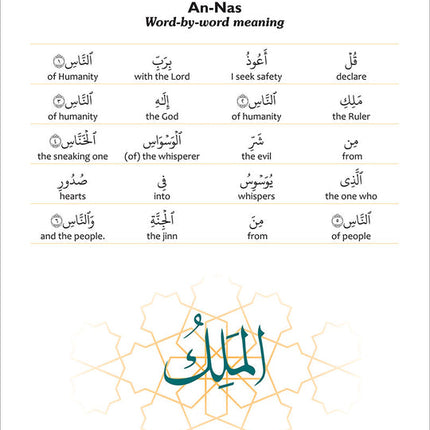 An-Nas
Word-by-word meaning
قُلْ أَعُوذُ بِرَبِّ ٱلنَّاسِ ۝١
declare I seek safety with the Lord of Humanity
مَلِكِ ٱلنَّاسِ ۝٢ إِلَٰهِ ٱلنَّاسِ ۝٣
the Ruler of humanity the God of humanity
مِن شَرِّ ٱلْوَسْوَاسِ ٱلْخَنَّاسِ ۝٤
from the evil (of) the whisperer the sneaking one
ٱلَّذِى يُوَسْوِسُ فِى صُدُورِ
the one who whispers into hearts
ٱلنَّاسِ ۝٥ مِنَ ٱلْجِنَّةِ وَٱلنَّاسِ ۝٦
of people from the jinn and the people.
ٱلْمَلِكُ